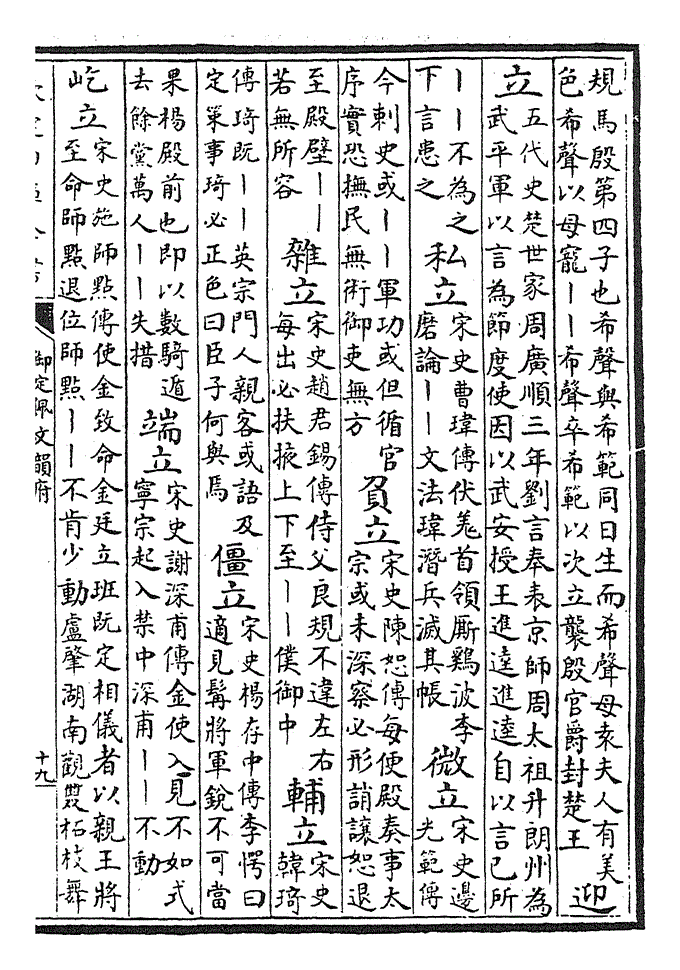 規馬殷第四子也希聲與希範同日生而希聲母袁夫人有美
色希聲以母寵丨丨希聲卒希範以次立襲殷官爵封楚王
迎
立
五代史楚世家周廣順三年劉言奉表京師周太祖升朗州為
武平軍以言為節度使因以武安授王進逵進逵自以言已所
丨丨不為之
下言患之
私立
宋史曹瑋傳伏羌首領厮鷄波李
磨論丨丨文法瑋潛兵滅其帳
微立
宋史邊
光範傳
今刺史或丨丨軍功或但循官
序實恐撫民無術御吏無方
負立
宋史陳恕傳每便殿奏事太
宗或未深察必形誚讓恕退
至殿壁丨丨
若無所容
雜立
宋史趙君錫傳侍父良規不違左右
每出必扶掖上下至丨丨僕御中
輔立
宋史
韓琦
傳琦既丨丨英宗門人親客或語及
定策事琦必正色曰臣子何與焉
僵立
宋史楊存中傳李愕曰
適見髯將軍銳不可當
果楊殿前也即以數騎遁
去餘黨萬人丨丨失措
端立
宋史謝深甫傳金使入見不如式
寧宗起入禁中深甫丨丨不動
屹立
宋史施師點傳使金致命金廷立班既定相儀者以親王將
至命師點退位師點丨丨不肯少動盧肇湖南觀雙柘枝舞
御定佩文韻府
十九